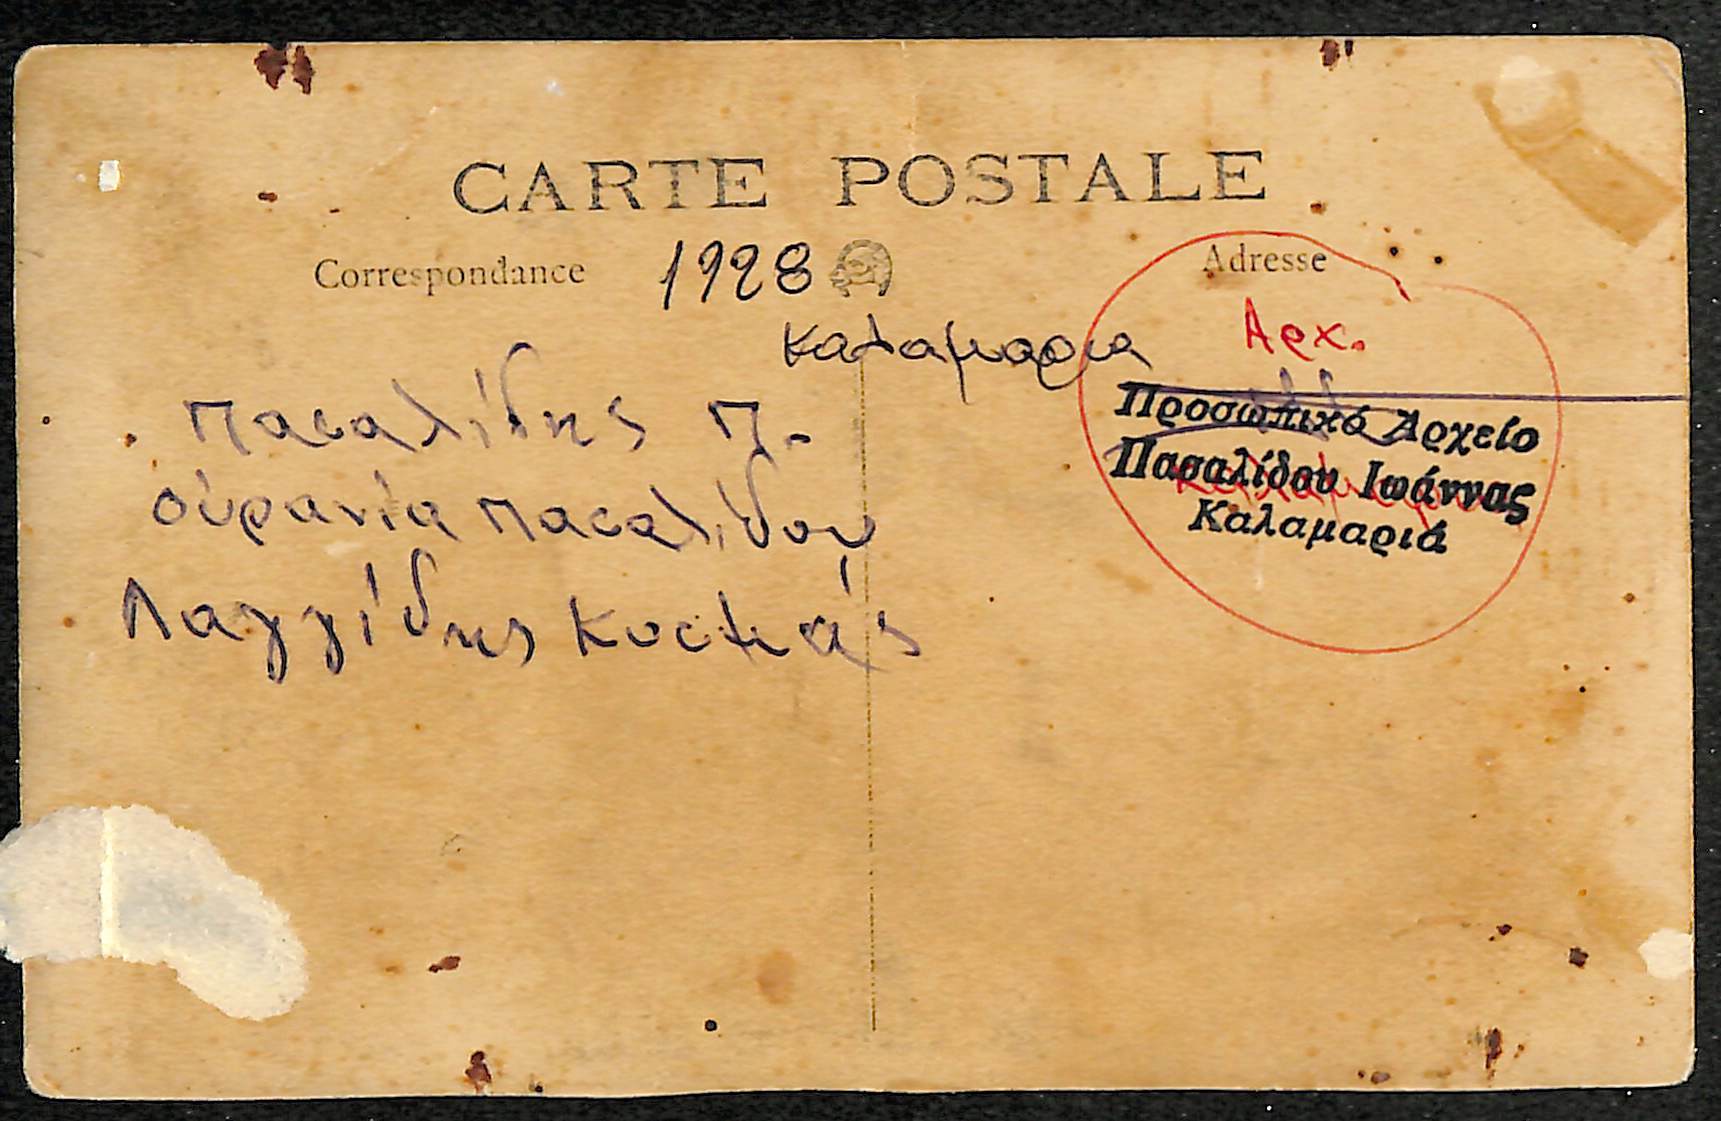 CARTE POSTALE
Correspondance
1928
Adresse
Καλαμαρια
Αρχ.
Πασαλίδης Π.
Προσωπικό Αρχείο
Πασαλίδου Ιωάννας
Καλαμαριά
οὐρανία Πασαλίδου
Λαγγίδης Κοσμάς